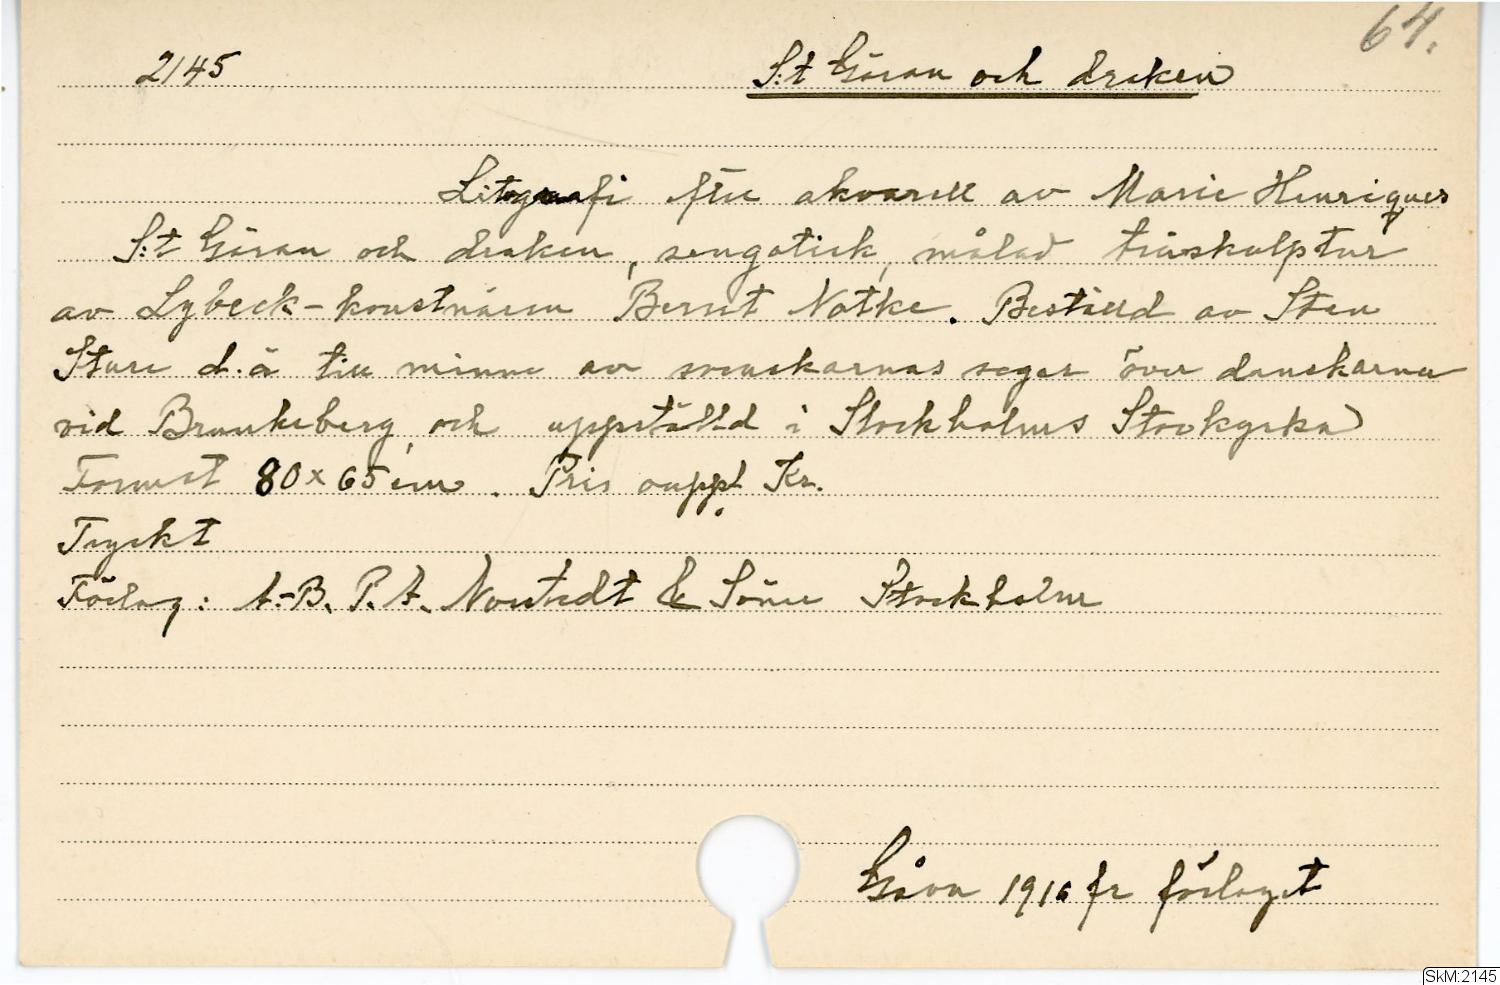 64.
2145 S:t Göran och draken
Litografi efter akvarell av Marie Henriques
S:t Göran och draken, sengotisk, målad träskulptur
av Lybeck-konstnären Bernt Notke. Beställd av Sten
Sture d.ä till minne av svenskarnas seger över danskarna
vid Brunkeberg, och uppställd i Stockholms Storkyrka
Format 80x65 cm. Pris ouppl. Kr.
Tryckt
Förlag: A.-B. P.A. Norstedt & Söner Stockholm
Gåva 1916 fr förlaget
SkM:2145